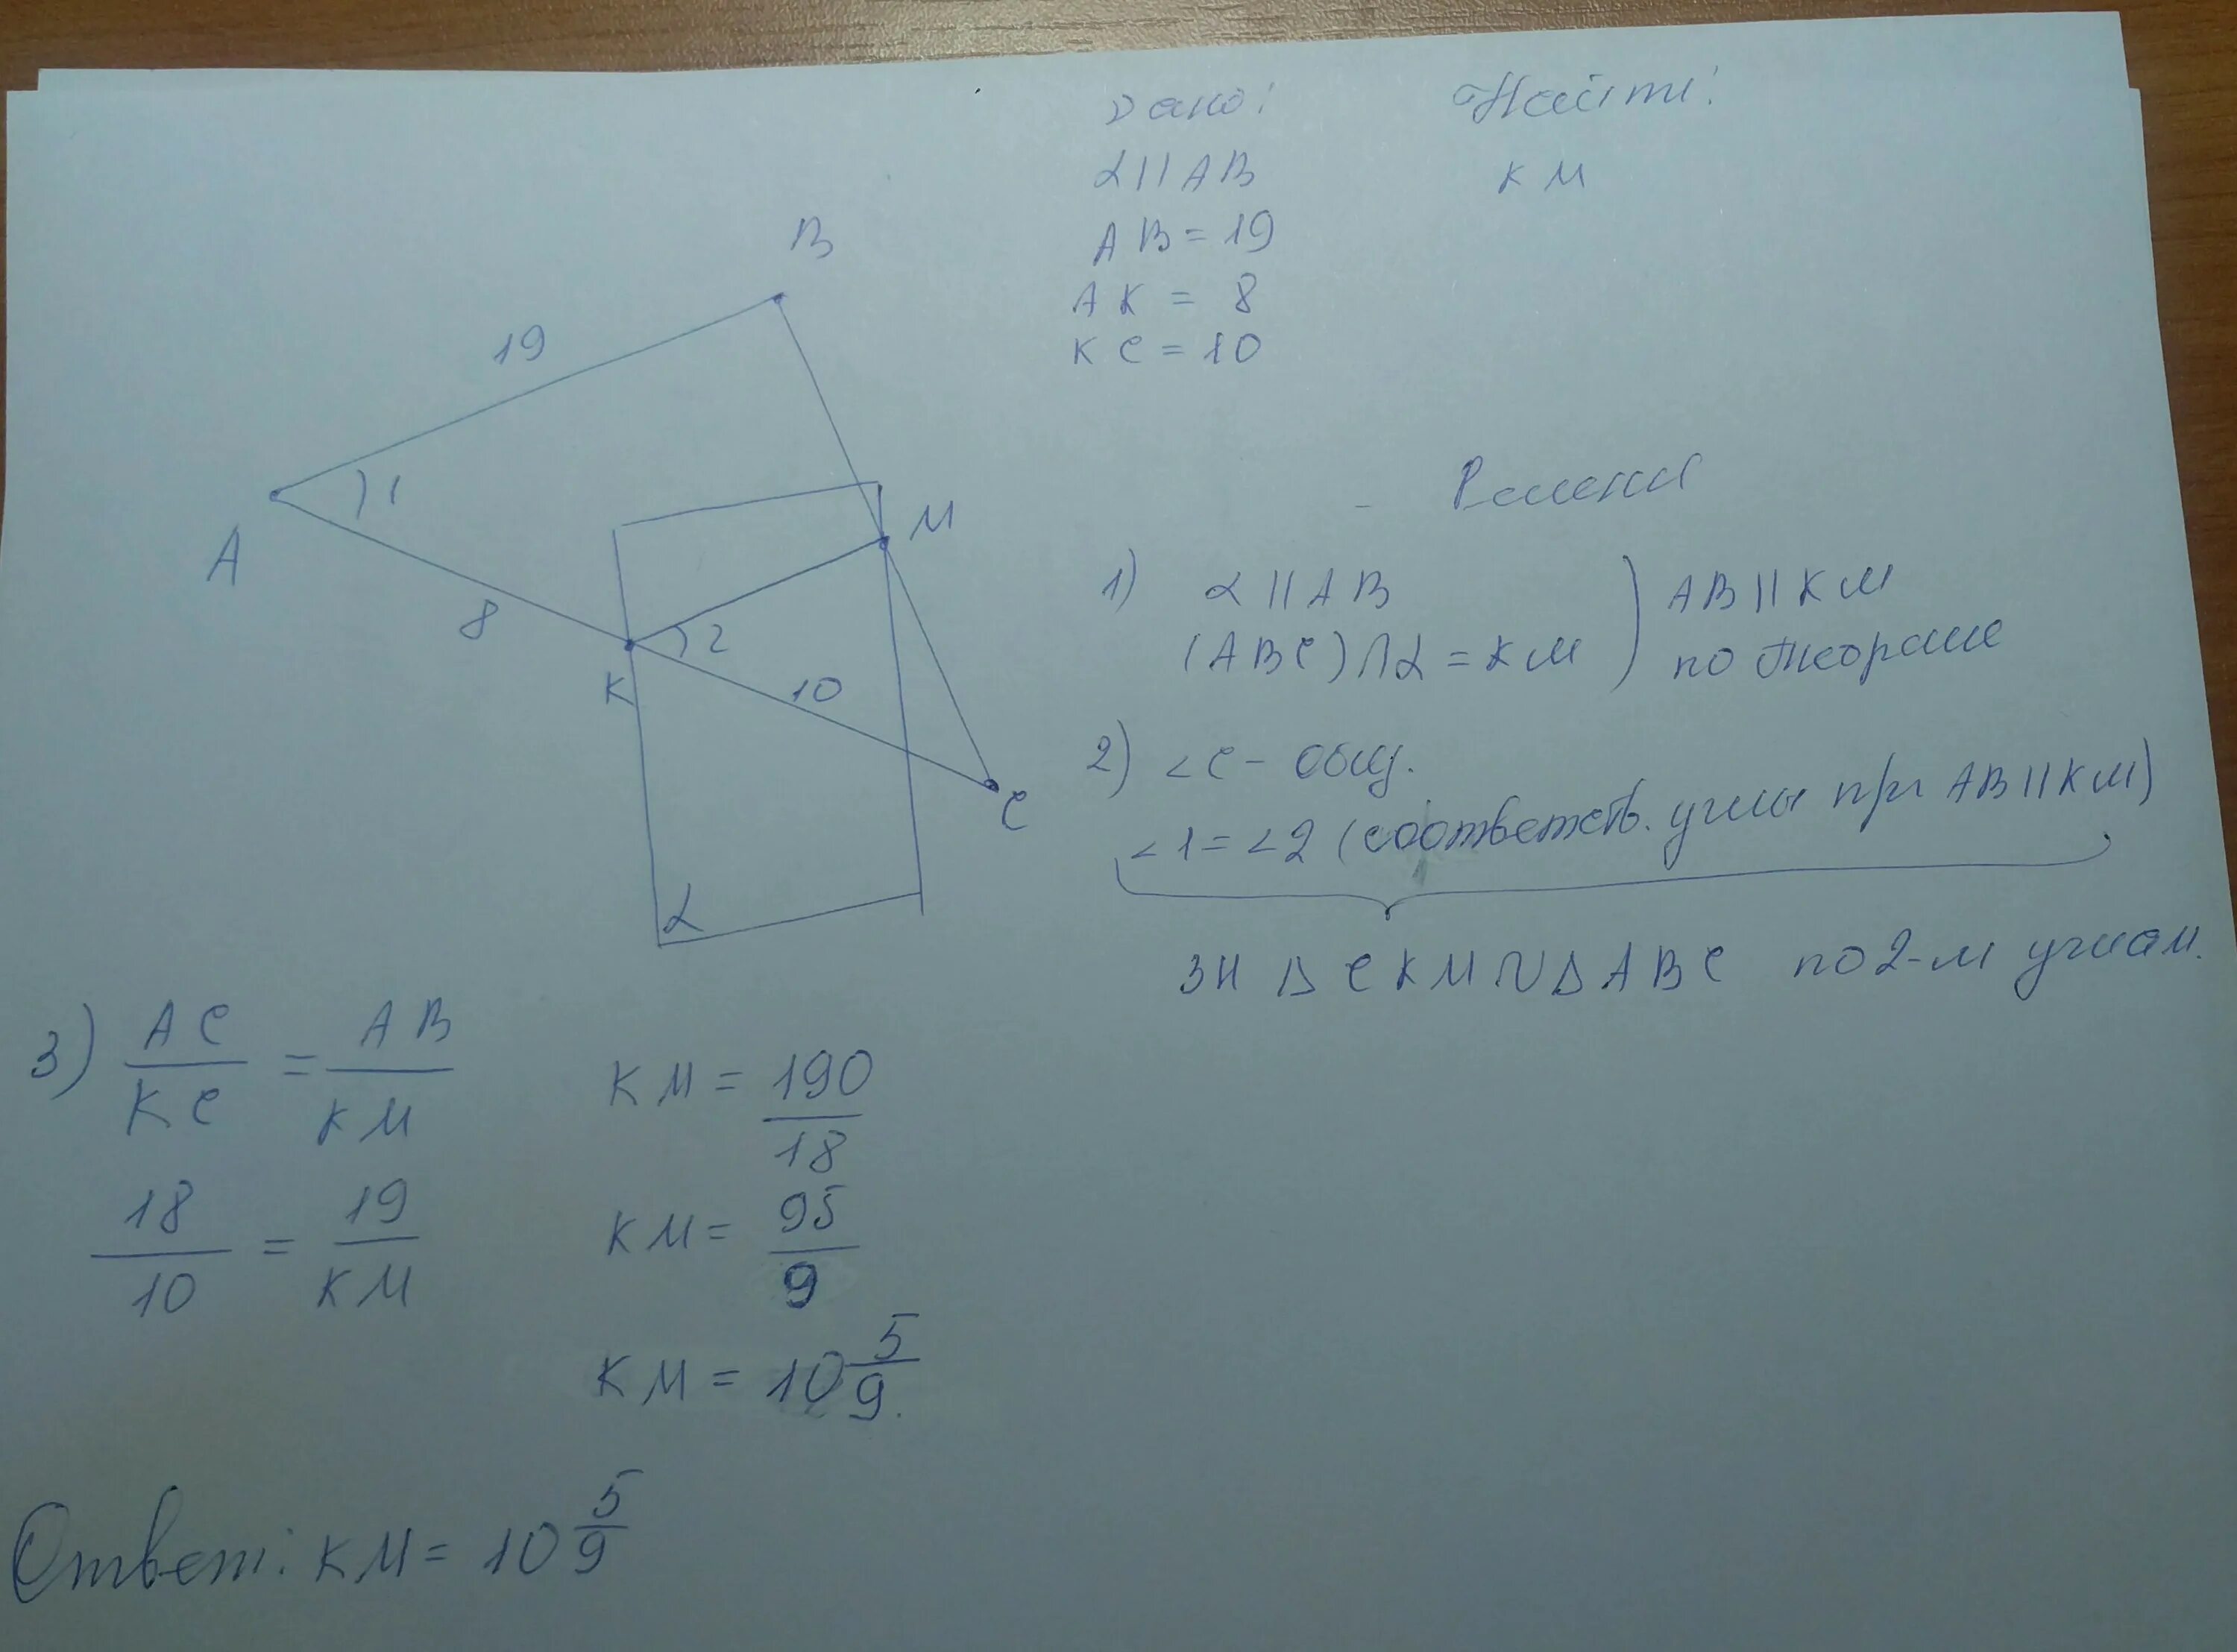 B
19
1
A
M
8
2
K
10
C
α
Дано:
α || AB
AB = 19
AK = 8
KC = 10
Найти:
KM
Решени
1) α || AB
(ABC) ∩ α = KM
AB || KM
по теореме
2) ∠C - общ.
∠1 = ∠2 (соответств. углы при AB || KM)
ЗН Δ CKM ∾ Δ ABC по 2-м углам.
3) AC/KC = AB/KM
18/10 = 19/KM
KM = 190/18
KM = 95/9
KM = 10 5/9.
Ответ: KM = 10 5/9